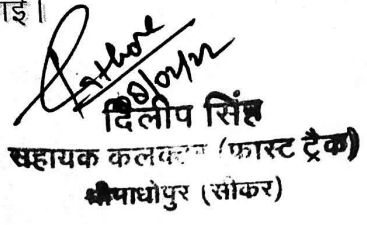 ाई।
Rathore
दिलीप सिंह
सहायक कलक्टर (फास्ट ट्रैक)
श्रीमाधोपुर (सीकर)